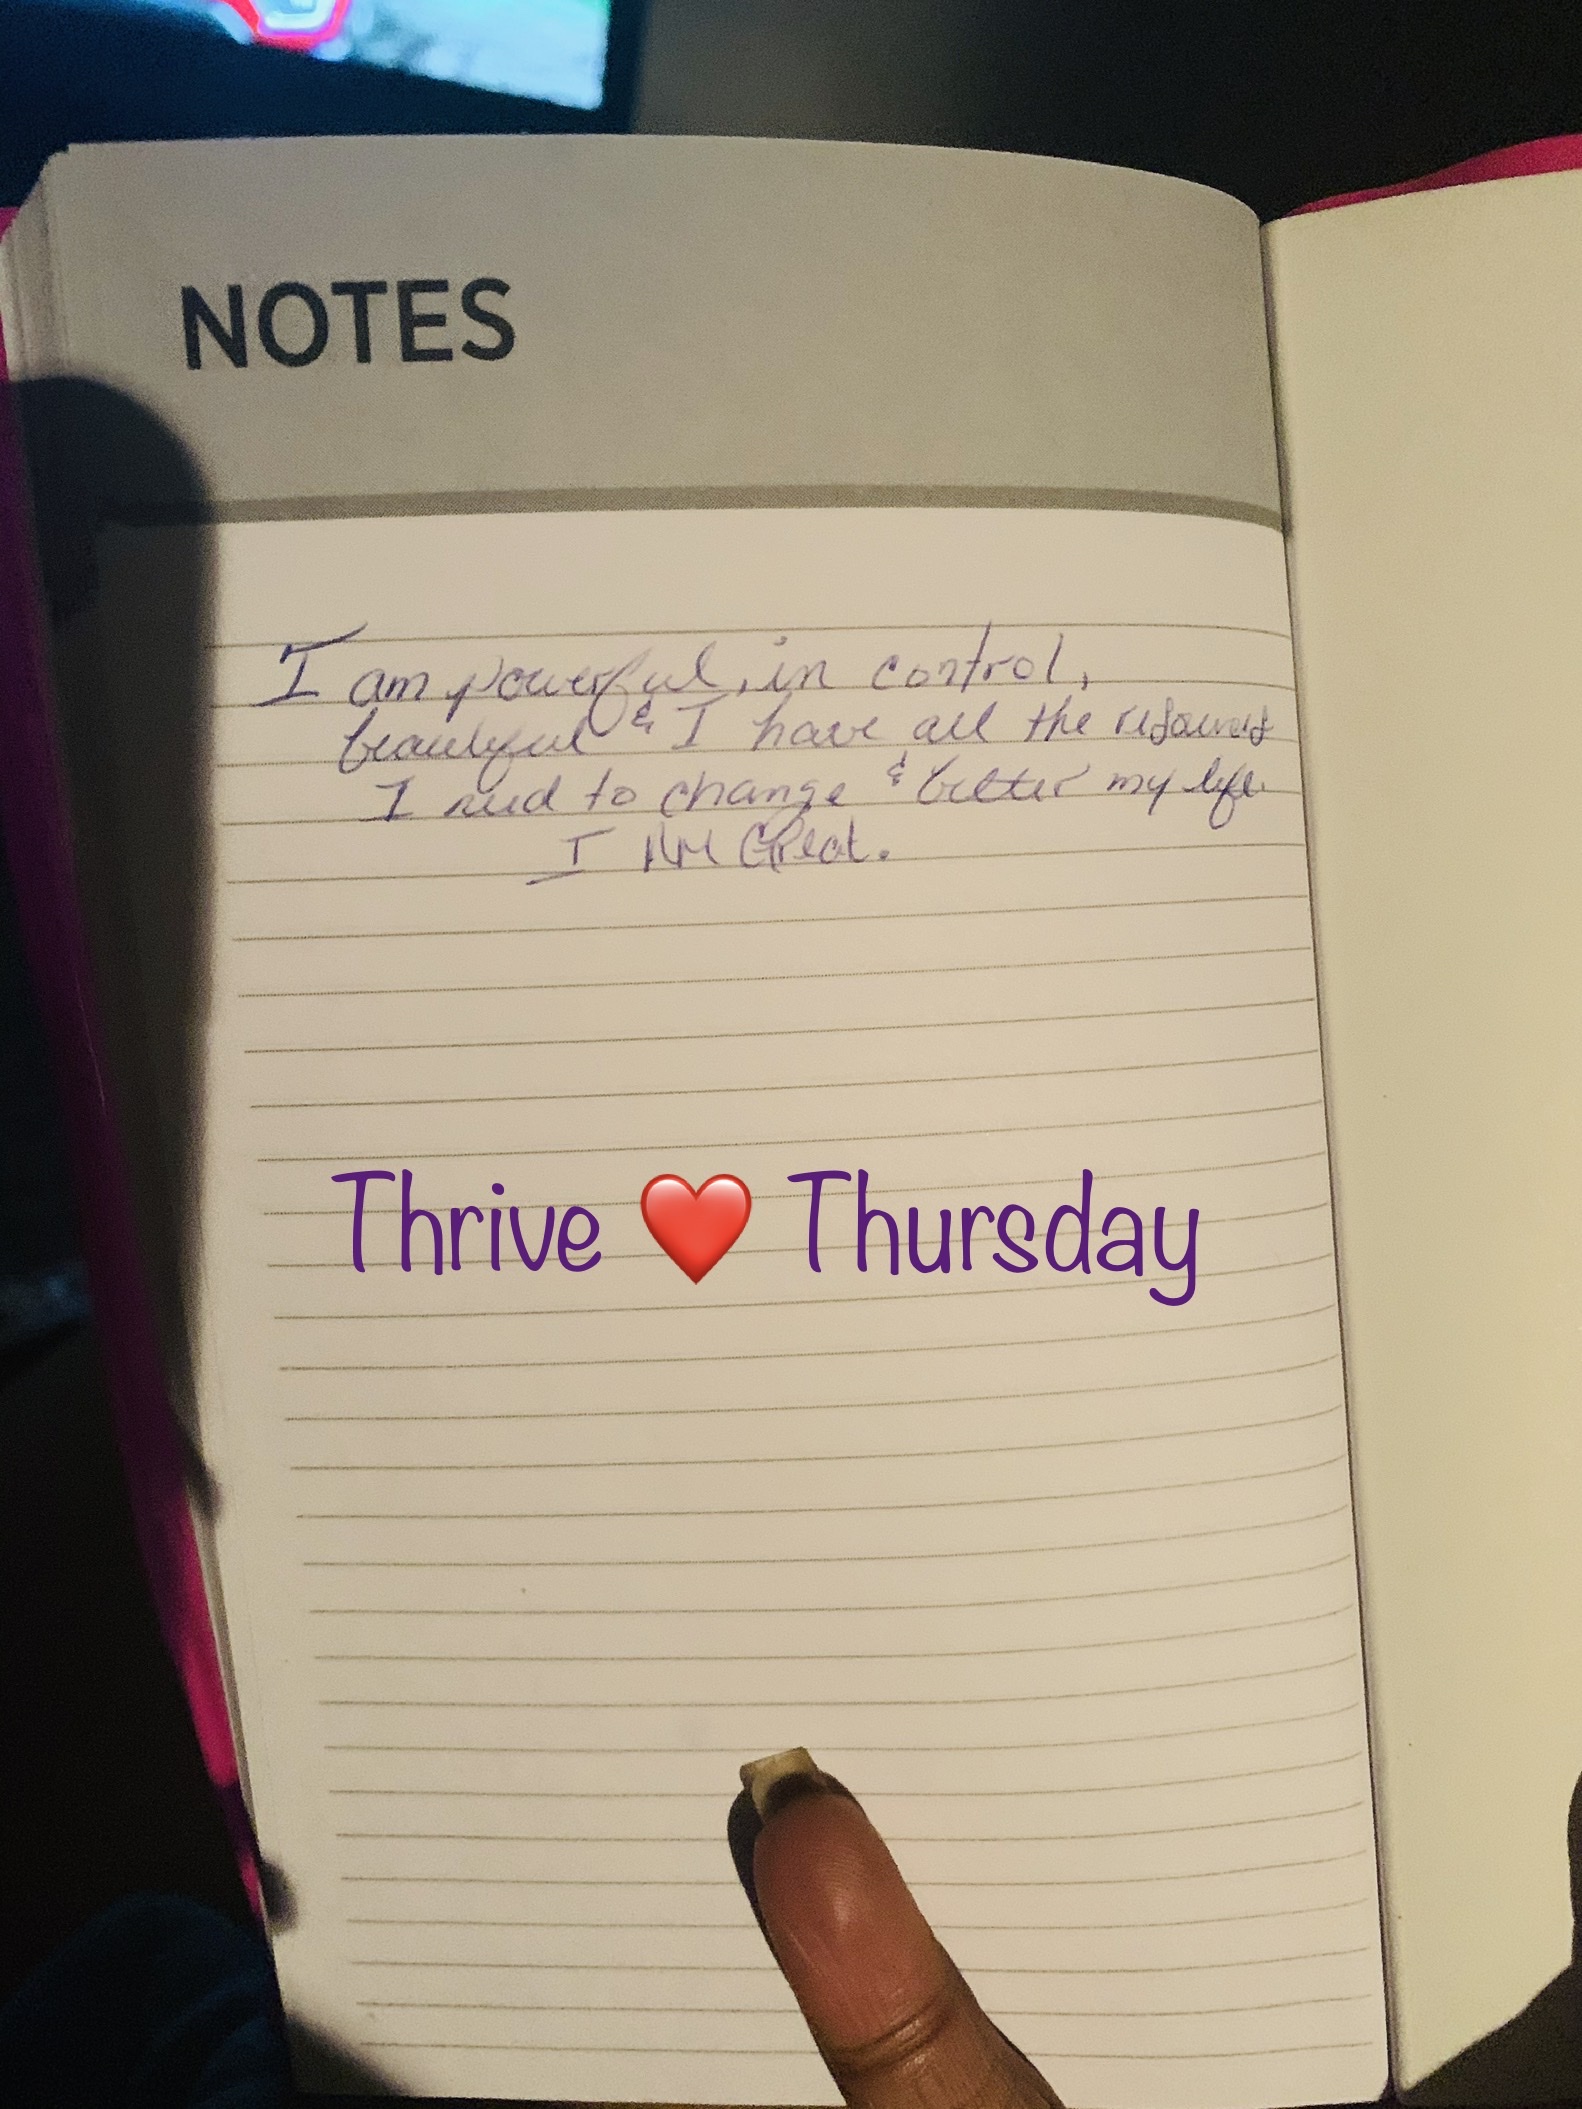 NOTES
I am powerful, in control,
beautiful & I have all the resources
I need to change & better my life.
I AM Great.
Thrive ❤️ Thursday